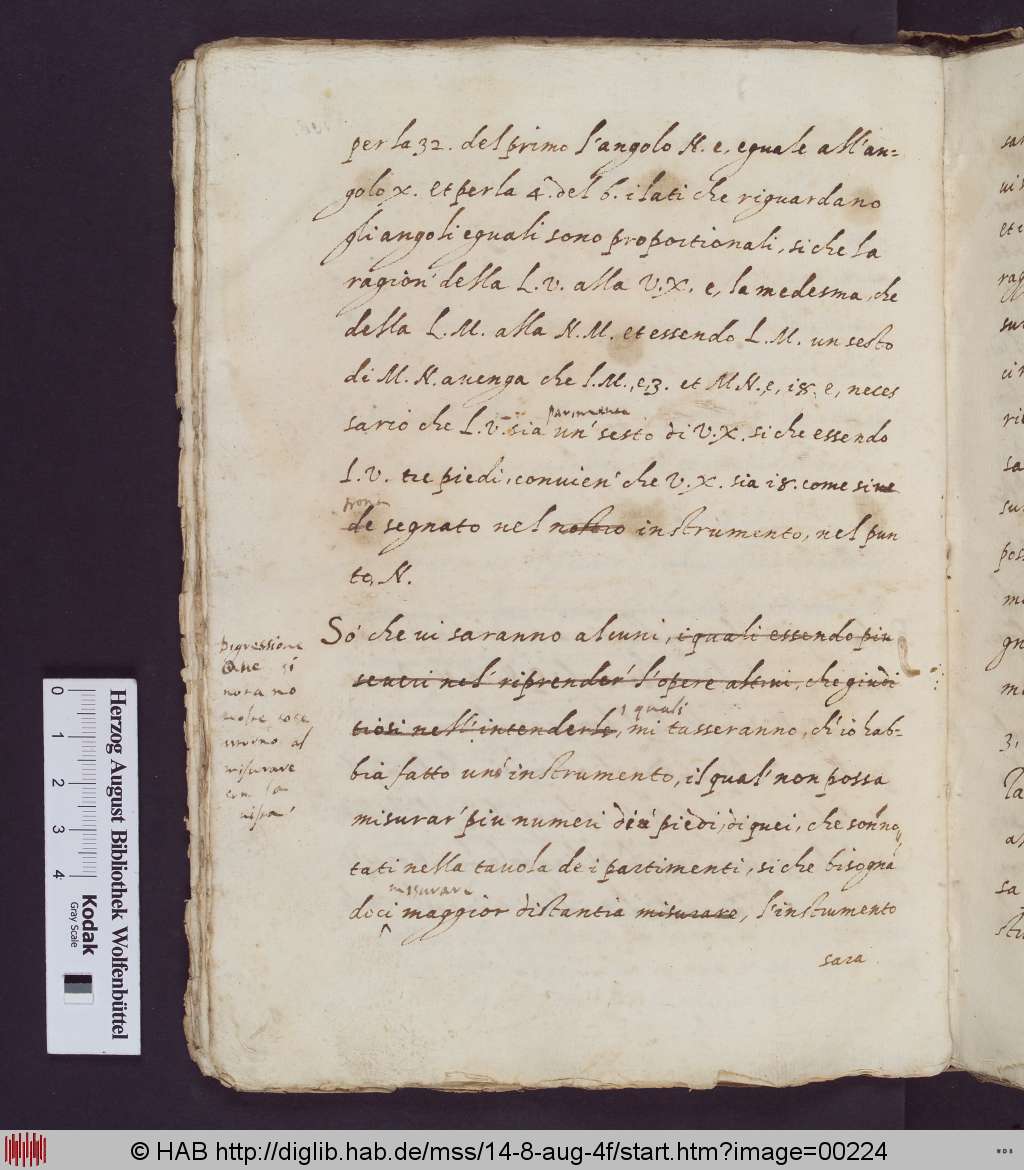 per la 32. del primo l'angolo N. e, eguale all'an=
golo x. et per la 4ª. del 6. i lati che riguardano
gli angoli eguali sono proportionali, si che la
ragion' della L.V. alla V.X. e, la medesma, che
della L.M. alla N.M. et essendo L.M. un sesto
di M.N. auenga che L.M., e, 3. et M.N., e, 18. e, neces
parimente
sario che L.V. sia un' sesto di V.X. si che essendo
L.V. tre piedi, conuien' che V.X. sia 18. come si ue
de segnato nel nostro instrumento, nel pun
to, N.
Digressione
Que si
notano
molte cose
intorno al
misurare
con la
uista
Só che ui saranno alcuni, i quali essendo piu
seueri nel' riprender' l'opere altrui, che giudi
i quali
tiosi nell'intenderle, mi tasseranno, ch'io hab=
bia fatto uno instrumento, il qual' non possa
misurar' piu numeri di piedi, di quei, che son' no
tati nella tauola de i partimenti, si che bisogna
misurare
doci maggior distantia misurare, l'instrumento
sara
Herzog August Bibliothek Wolfenbüttel
Kodak
Gray Scale
0 1 2 3 4
© HAB http://diglib.hab.de/mss/14-8-aug-4f/start.htm?image=00224